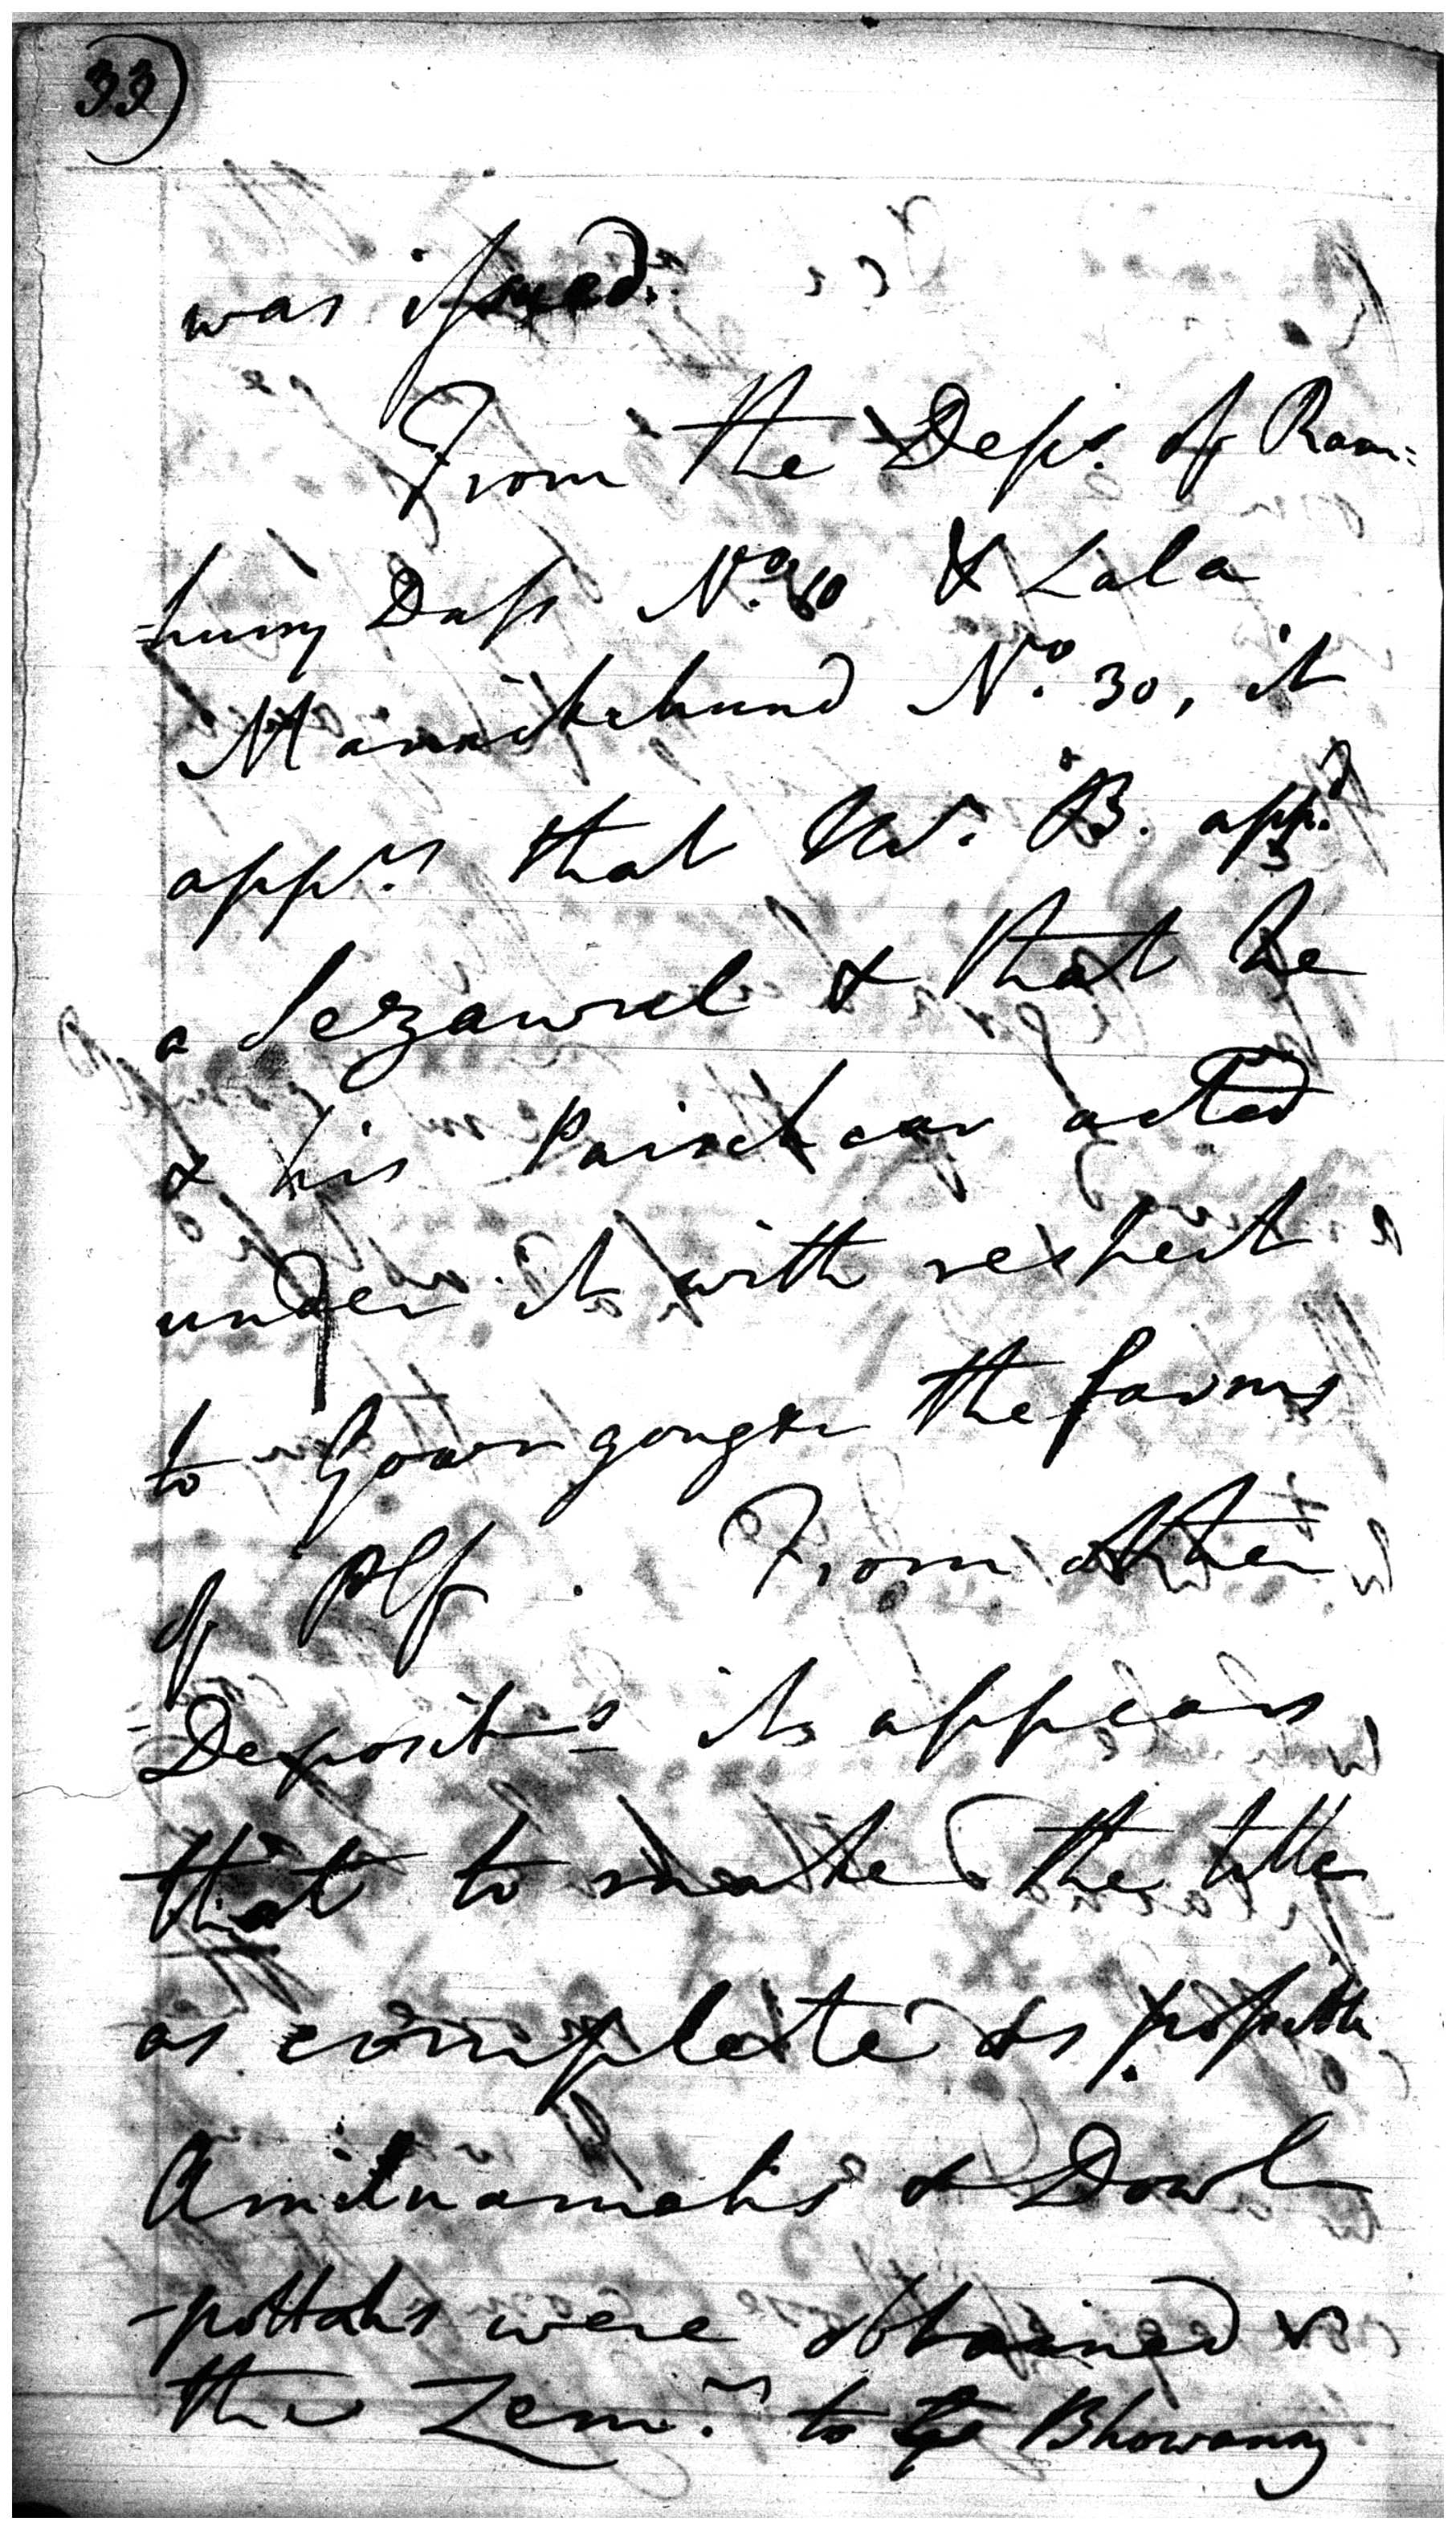 33)
was issued.
From the Deps. of Ram:
=hurry Dass No. 60 & Lala
Manickchund No. 30, it
apprs. that W. B. appd.
a Sezawul & that he
& his Paishcar acted
under it with respect
to Goargong the farms
of Plf. From other
Depositns it appears
that to make the title
as complete as possible
Amilnamahs & Dowl
-pottahs were obtained
the Zemrs. to Bhowanny